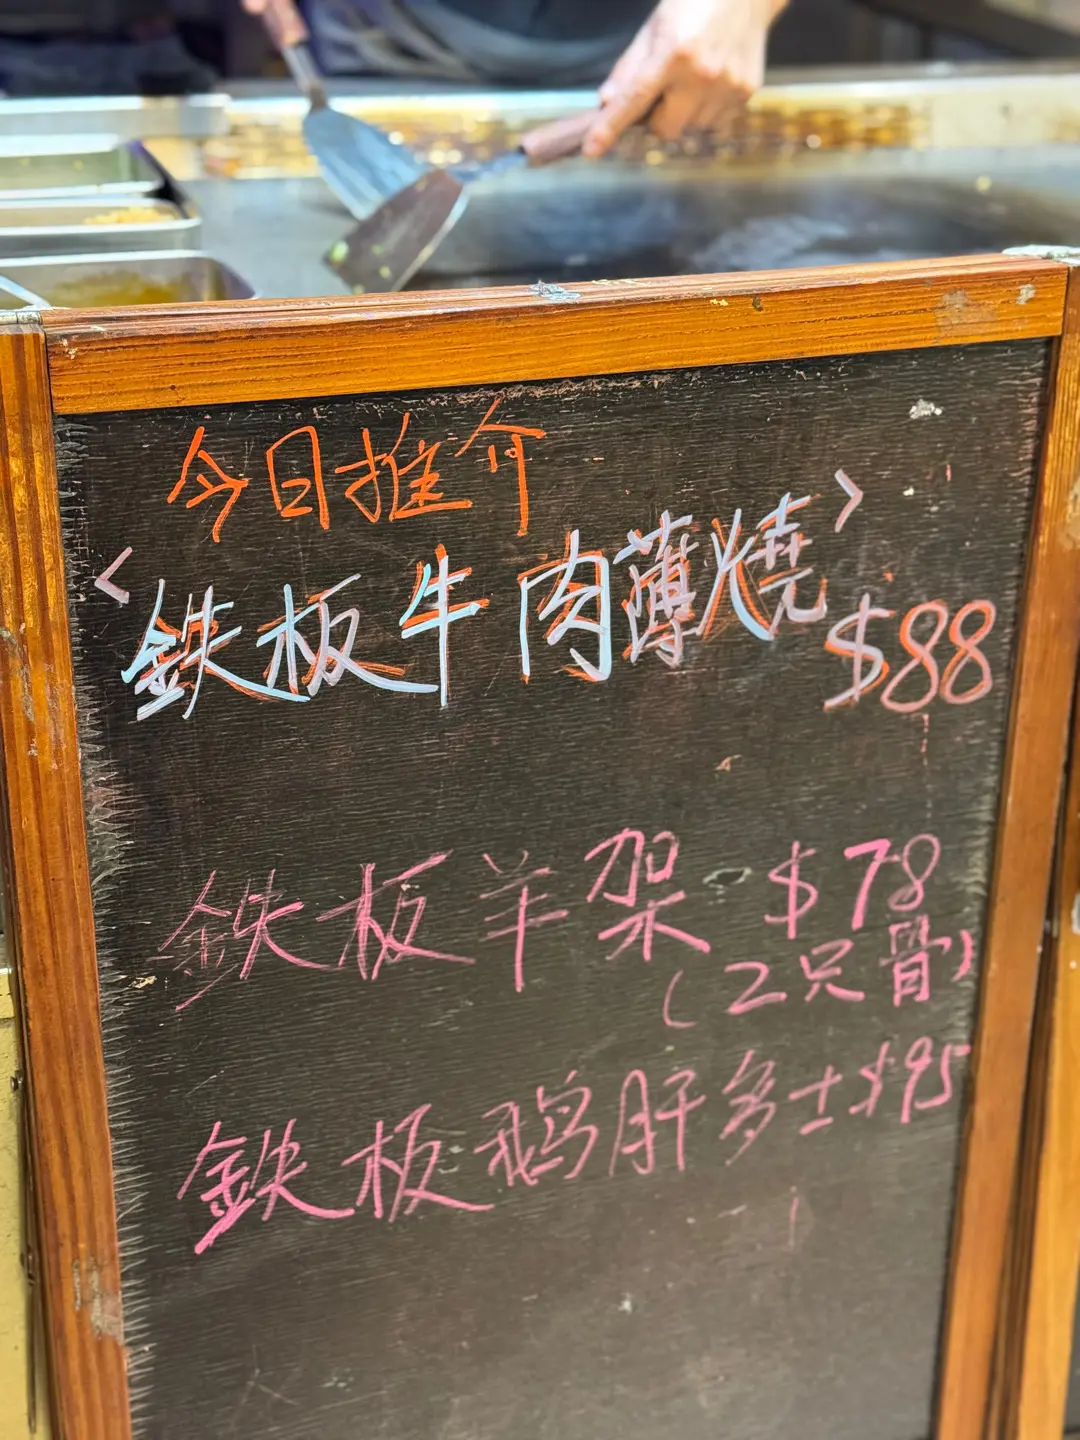 今日推介
<鉄板牛肉薄燒>
$88
鉄板羊架 $78
(2只骨)
鉄板鵝肝多士$95